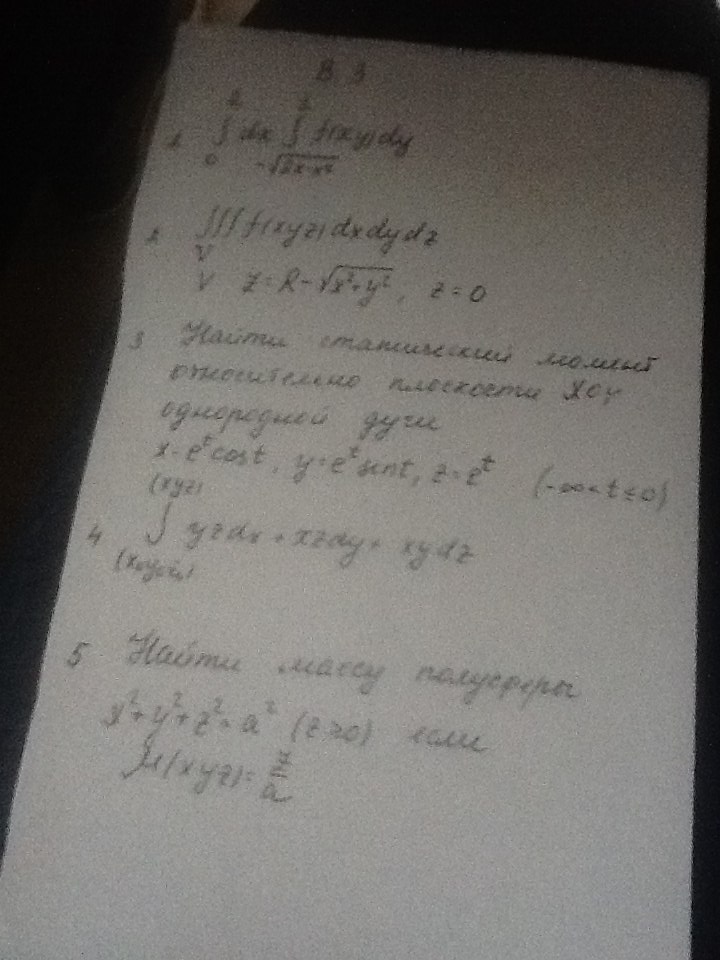 В 3
∫ dx ∫ f(xy)dy
0 -√2x-x²
2 ∫∫∫ f(xyz)dxdydz
V
V z=R-√x²+y², z=0
3 Найти статический момент
относительно плоскости XOY
однородной дуги
x=eᵗcost, y=eᵗsint, z=eᵗ (-∞<t≤0)
(xyz)
4 ∫ yzdx + xzdy + xydz
(x₀y₀z₀)
5 Найти массу полусферы
x²+y²+z²=a² (z≥0) если
μ(xyz)=z/a